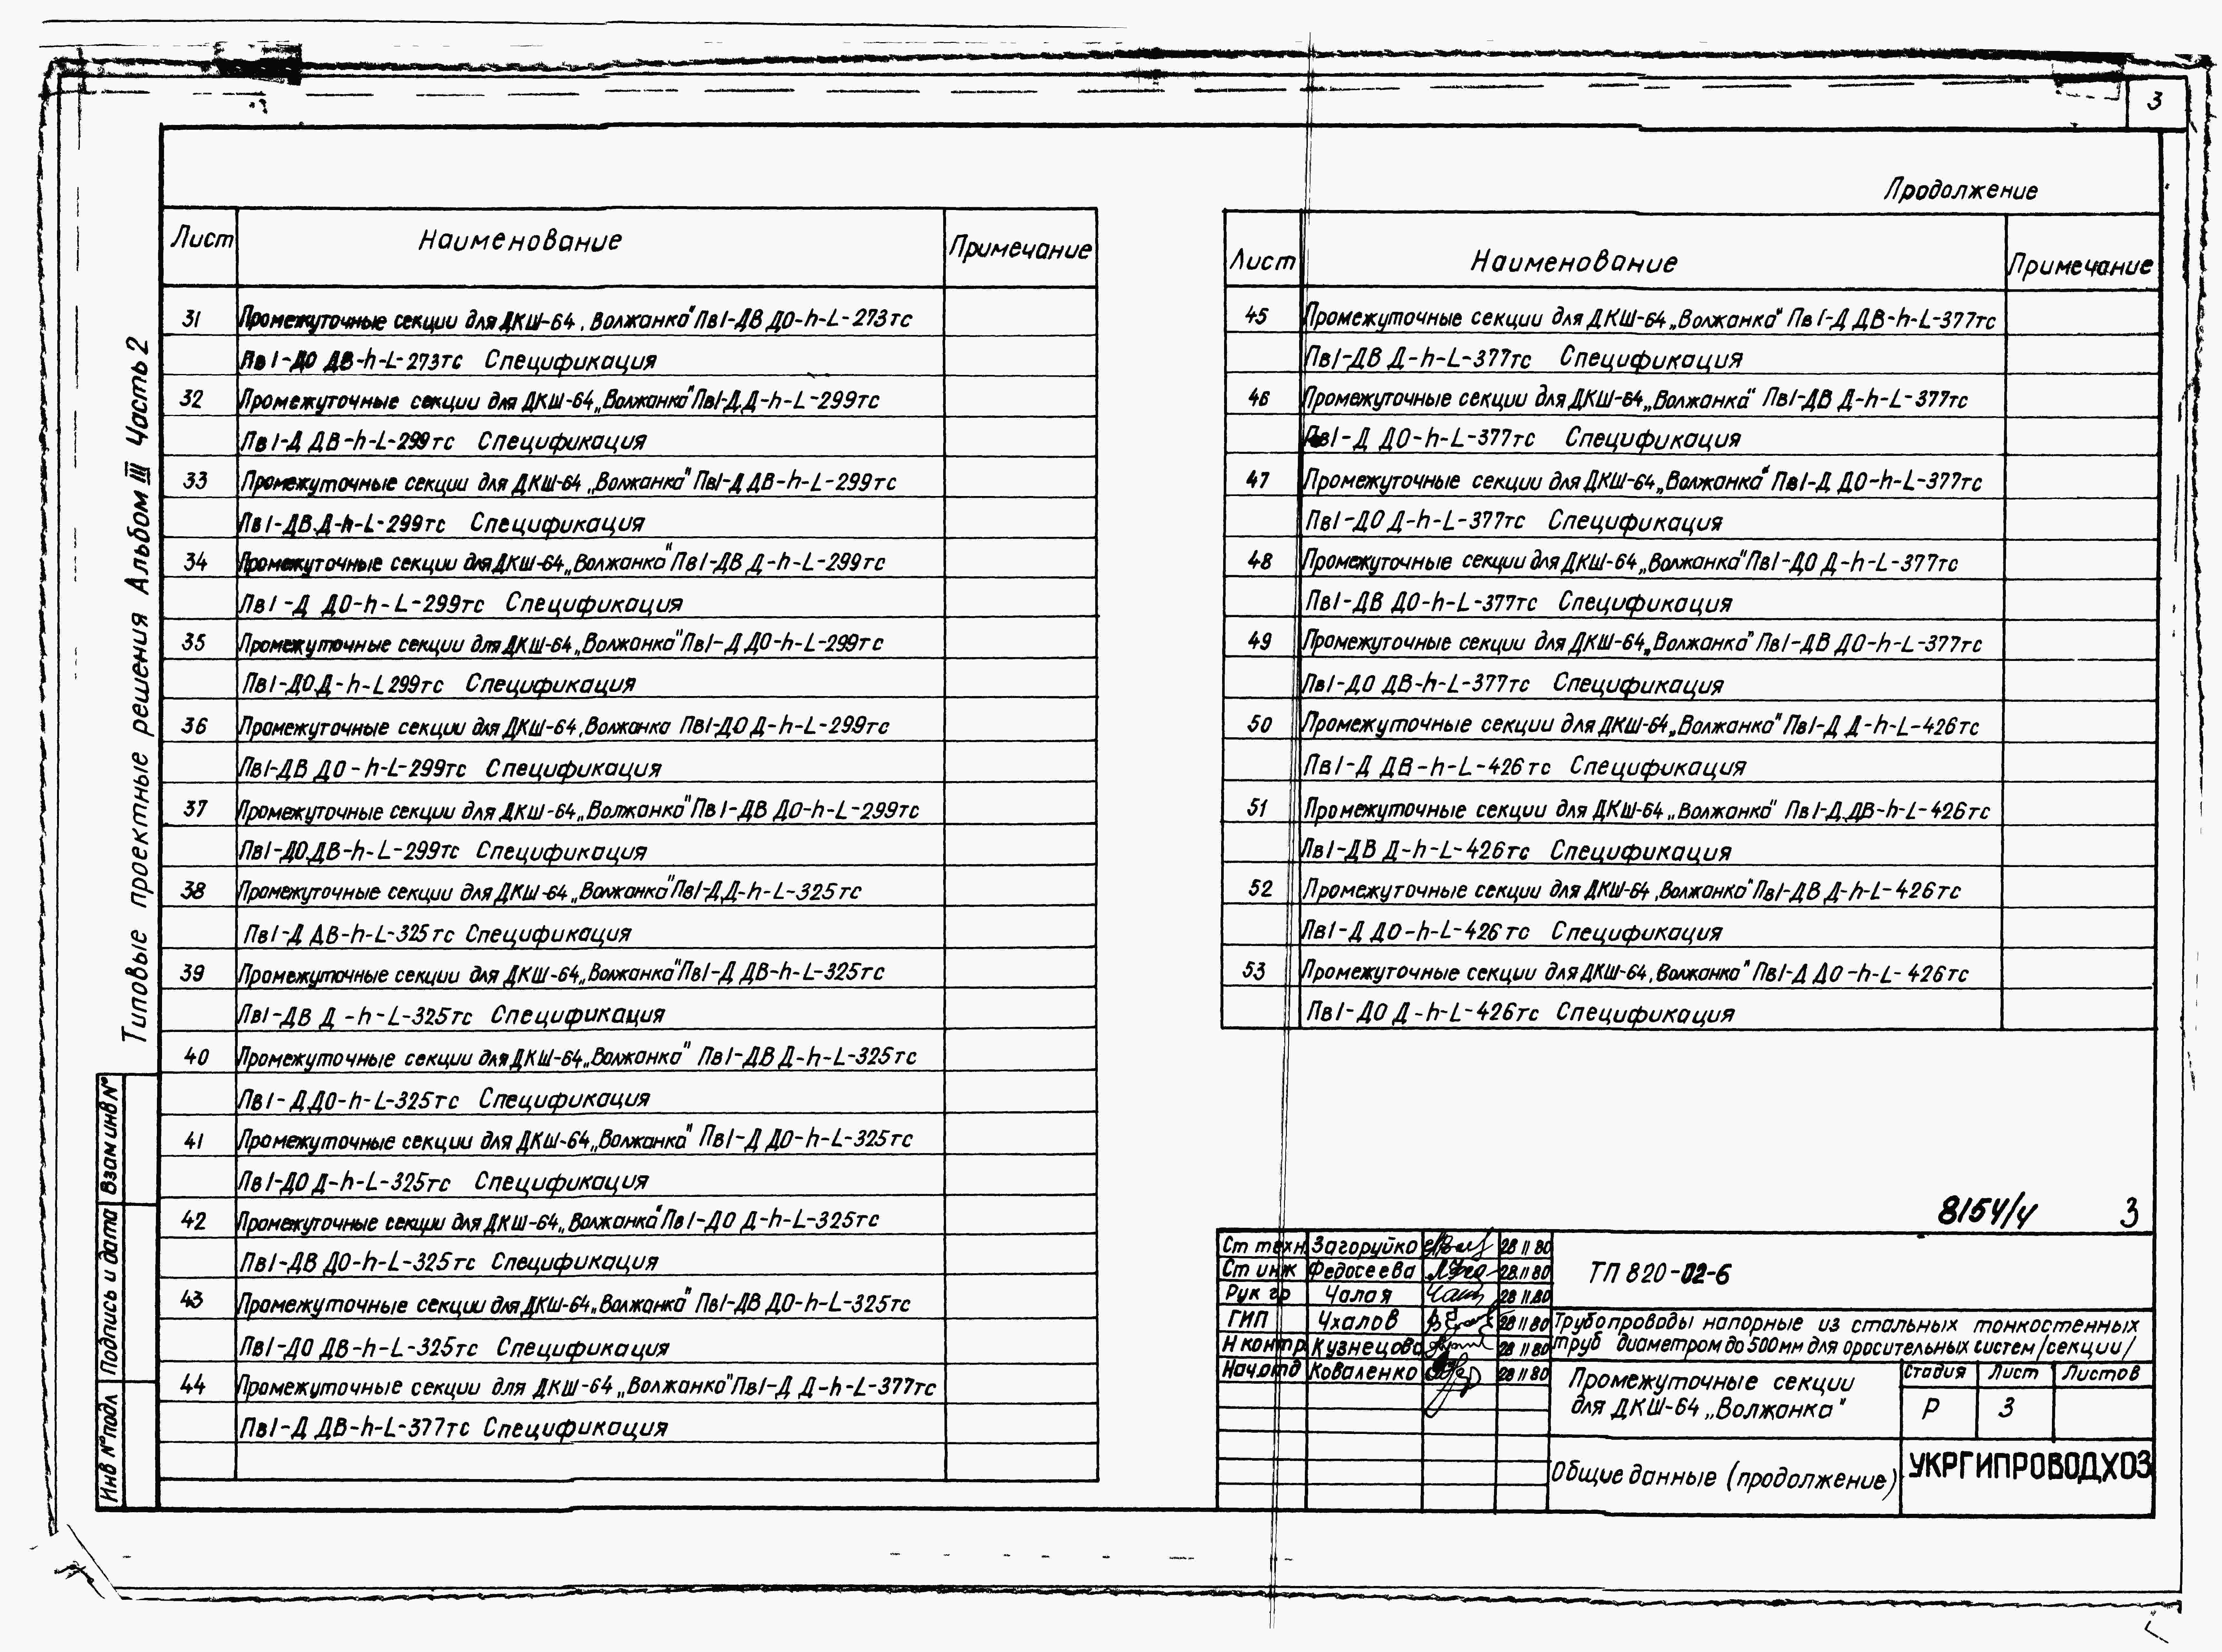 3
Продолжение
Типовые проектные решения Альбом III Часть 2
Лист Наименование Примечание
31 Промежуточные секции для ДКШ-64 „Волжанка" Пв1-ДВ ДО-h-L-273тс
Пв1-ДО ДВ-h-L-273тс Спецификация
32 Промежуточные секции для ДКШ-64 „Волжанка" Пв1-Д Д-h-L-299тс
Пв1-Д ДВ-h-L-299тс Спецификация
33 Промежуточные секции для ДКШ-64 „Волжанка" Пв1-Д ДВ-h-L-299тс
Пв1-ДВ Д-h-L-299тс Спецификация
34 Промежуточные секции для ДКШ-64 „Волжанка" Пв1-ДВ Д-h-L-299тс
Пв1-Д ДО-h-L-299тс Спецификация
35 Промежуточные секции для ДКШ-64 „Волжанка" Пв1-Д ДО-h-L-299тс
Пв1-ДО Д-h-L 299тс Спецификация
36 Промежуточные секции для ДКШ-64 „Волжанка Пв1-ДО Д-h-L-299тс
Пв1-ДВ ДО-h-L-299тс Спецификация
37 Промежуточные секции для ДКШ-64 „Волжанка" Пв1-ДВ ДО-h-L-299тс
Пв1-ДО ДВ-h-L-299тс Спецификация
38 Промежуточные секции для ДКШ-64 „Волжанка" Пв1-Д Д-h-L-325тс
Пв1-Д ДВ-h-L-325тс Спецификация
39 Промежуточные секции для ДКШ-64 „Волжанка" Пв1-Д ДВ-h-L-325тс
Пв1-ДВ Д-h-L-325тс Спецификация
40 Промежуточные секции для ДКШ-64 „Волжанка" Пв1-ДВ Д-h-L-325тс
Пв1-Д ДО-h-L-325тс Спецификация
41 Промежуточные секции для ДКШ-64 „Волжанка" Пв1-Д ДО-h-L-325тс
Пв1-ДО Д-h-L-325тс Спецификация
42 Промежуточные секции для ДКШ-64 „Волжанка" Пв1-ДО Д-h-L-325тс
Пв1-ДВ ДО-h-L-325тс Спецификация
43 Промежуточные секции для ДКШ-64 „Волжанка" Пв1-ДВ ДО-h-L-325тс
Пв1-ДО ДВ-h-L-325тс Спецификация
44 Промежуточные секции для ДКШ-64 „Волжанка" Пв1-Д Д-h-L-377тс
Пв1-Д ДВ-h-L-377тс Спецификация
Лист Наименование Примечание
45 Промежуточные секции для ДКШ-64 „Волжанка" Пв1-Д ДВ-h-L-377тс
Пв1-ДВ Д-h-L-377тс Спецификация
46 Промежуточные секции для ДКШ-64 „Волжанка" Пв1-ДВ Д-h-L-377тс
Пв1-Д ДО-h-L-377тс Спецификация
47 Промежуточные секции для ДКШ-64 „Волжанка" Пв1-Д ДО-h-L-377тс
Пв1-ДО Д-h-L-377тс Спецификация
48 Промежуточные секции для ДКШ-64 „Волжанка" Пв1-ДО Д-h-L-377тс
Пв1-ДВ ДО-h-L-377тс Спецификация
49 Промежуточные секции для ДКШ-64 „Волжанка" Пв1-ДВ ДО-h-L-377тс
Пв1-ДО ДВ-h-L-377тс Спецификация
50 Промежуточные секции для ДКШ-64 „Волжанка" Пв1-Д Д-h-L-426тс
Пв1-Д ДВ-h-L-426тс Спецификация
51 Промежуточные секции для ДКШ-64 „Волжанка" Пв1-Д ДВ-h-L-426тс
Пв1-ДВ Д-h-L-426тс Спецификация
52 Промежуточные секции для ДКШ-64 „Волжанка" Пв1-ДВ Д-h-L-426тс
Пв1-Д ДО-h-L-426тс Спецификация
53 Промежуточные секции для ДКШ-64 „Волжанка" Пв1-Д ДО-h-L-426тс
Пв1-ДО Д-h-L-426тс Спецификация
8154/4 3
Ст техн. Загоруйко 28 11 80
Ст инж Федосеева 28.11 80
Рук гр Чалая 28 11.80
ГИП Чхалов 28 11 80
Н контр. Кузнецова 28 11 80
Нач.отд Коваленко 28 11 80
ТП 820-02-6
Трубопроводы напорные из стальных тонкостенных
труб диаметром до 500мм для оросительных систем /секции/
Промежуточные секции
для ДКШ-64 „Волжанка"
Стадия Лист Листов
Р 3
Общие данные (продолжение)
УКРГИПРОВОДХОЗ
Взам инв N°
Подпись и дата
Инв N° подл